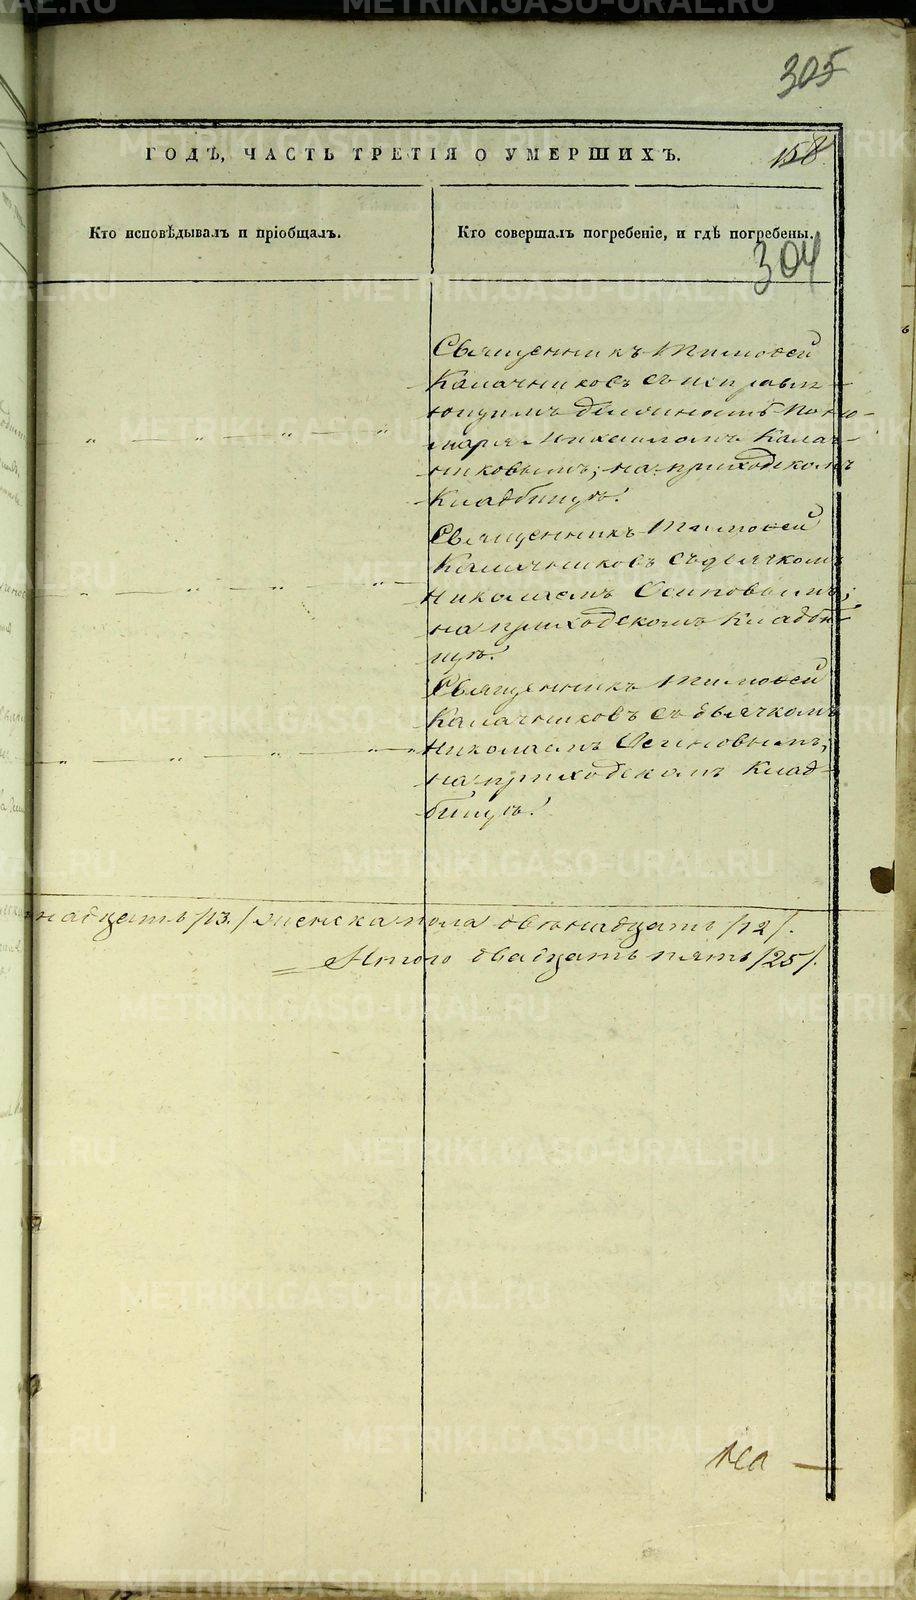 305
ГОДЪ, ЧАСТЬ ТРЕТІЯ О УМЕРШИХЪ.
158
Кто исповѣдывалъ и пріобщалъ.
Кто совершалъ погребеніе, и гдѣ погребены.
304
Священникъ Тимоѳей
Калачниковъ съ исправля-
ющимъ должность Поно-
маря Михаиломъ Калач-
никовымъ; на приходскомъ
Кладбищѣ.
Священникъ Тимоѳей
Калачниковъ съ дьячкомъ
Николаемъ Осиповымъ;
на приходскомъ Кладби-
щѣ.
Священникъ Тимоѳей
Калачниковъ съ дьячкомъ
Николаемъ Осиповымъ;
на приходскомъ Клад-
бищѣ.
надцать /13./ женска пола двѣнадцать /12/.
Итого двадцать пять /25/.
METRIKI.GASO-URAL.RU